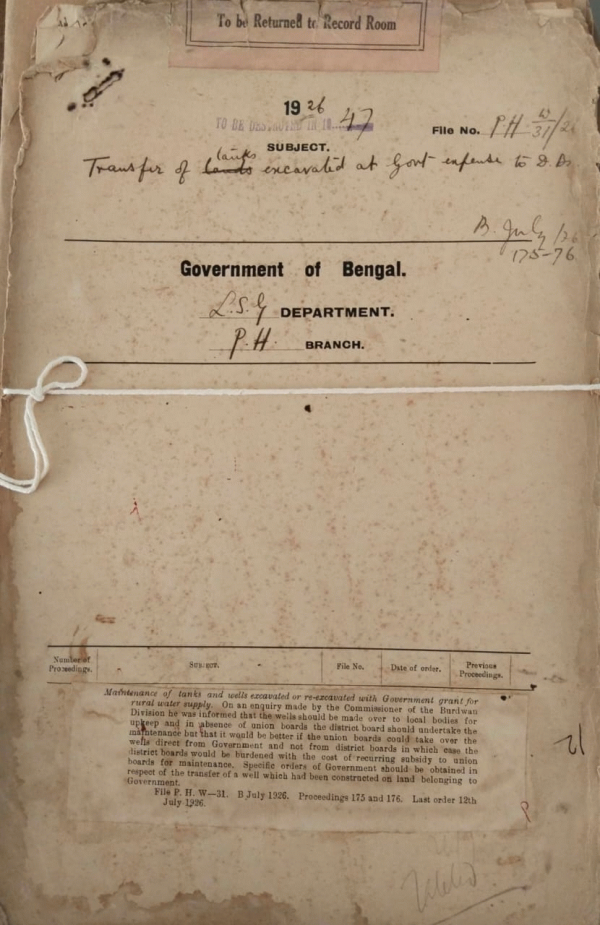 To be Returned to Record Room
1926
TO BE DESTROYED IN 19 47
File No. PH W/31/26
SUBJECT.
tanks
Transfer of lands excavated at Govt expense to D. Bs
B. July /26
175-76
Government of Bengal.
L.S.G DEPARTMENT.
P.H. BRANCH.
Number of Proceedings.
SUBJECT.
File No.
Date of order.
Previous Proceedings.
Maintenance of tanks and wells excavated or re-excavated with Government grant for
rural water supply. On an enquiry made by the Commissioner of the Burdwan
Division he was informed that the wells should be made over to local bodies for
upkeep and in absence of union boards the district board should undertake the
maintenance but that it would be better if the union boards could take over the
wells direct from Government and not from district boards in which case the
district boards would be burdened with the cost of recurring subsidy to union
boards for maintenance. Specific orders of Government should be obtained in
respect of the transfer of a well which had been constructed on land belonging to
Government.
File P. H. W—31. B July 1926. Proceedings 175 and 176. Last order 12th
July 1926.